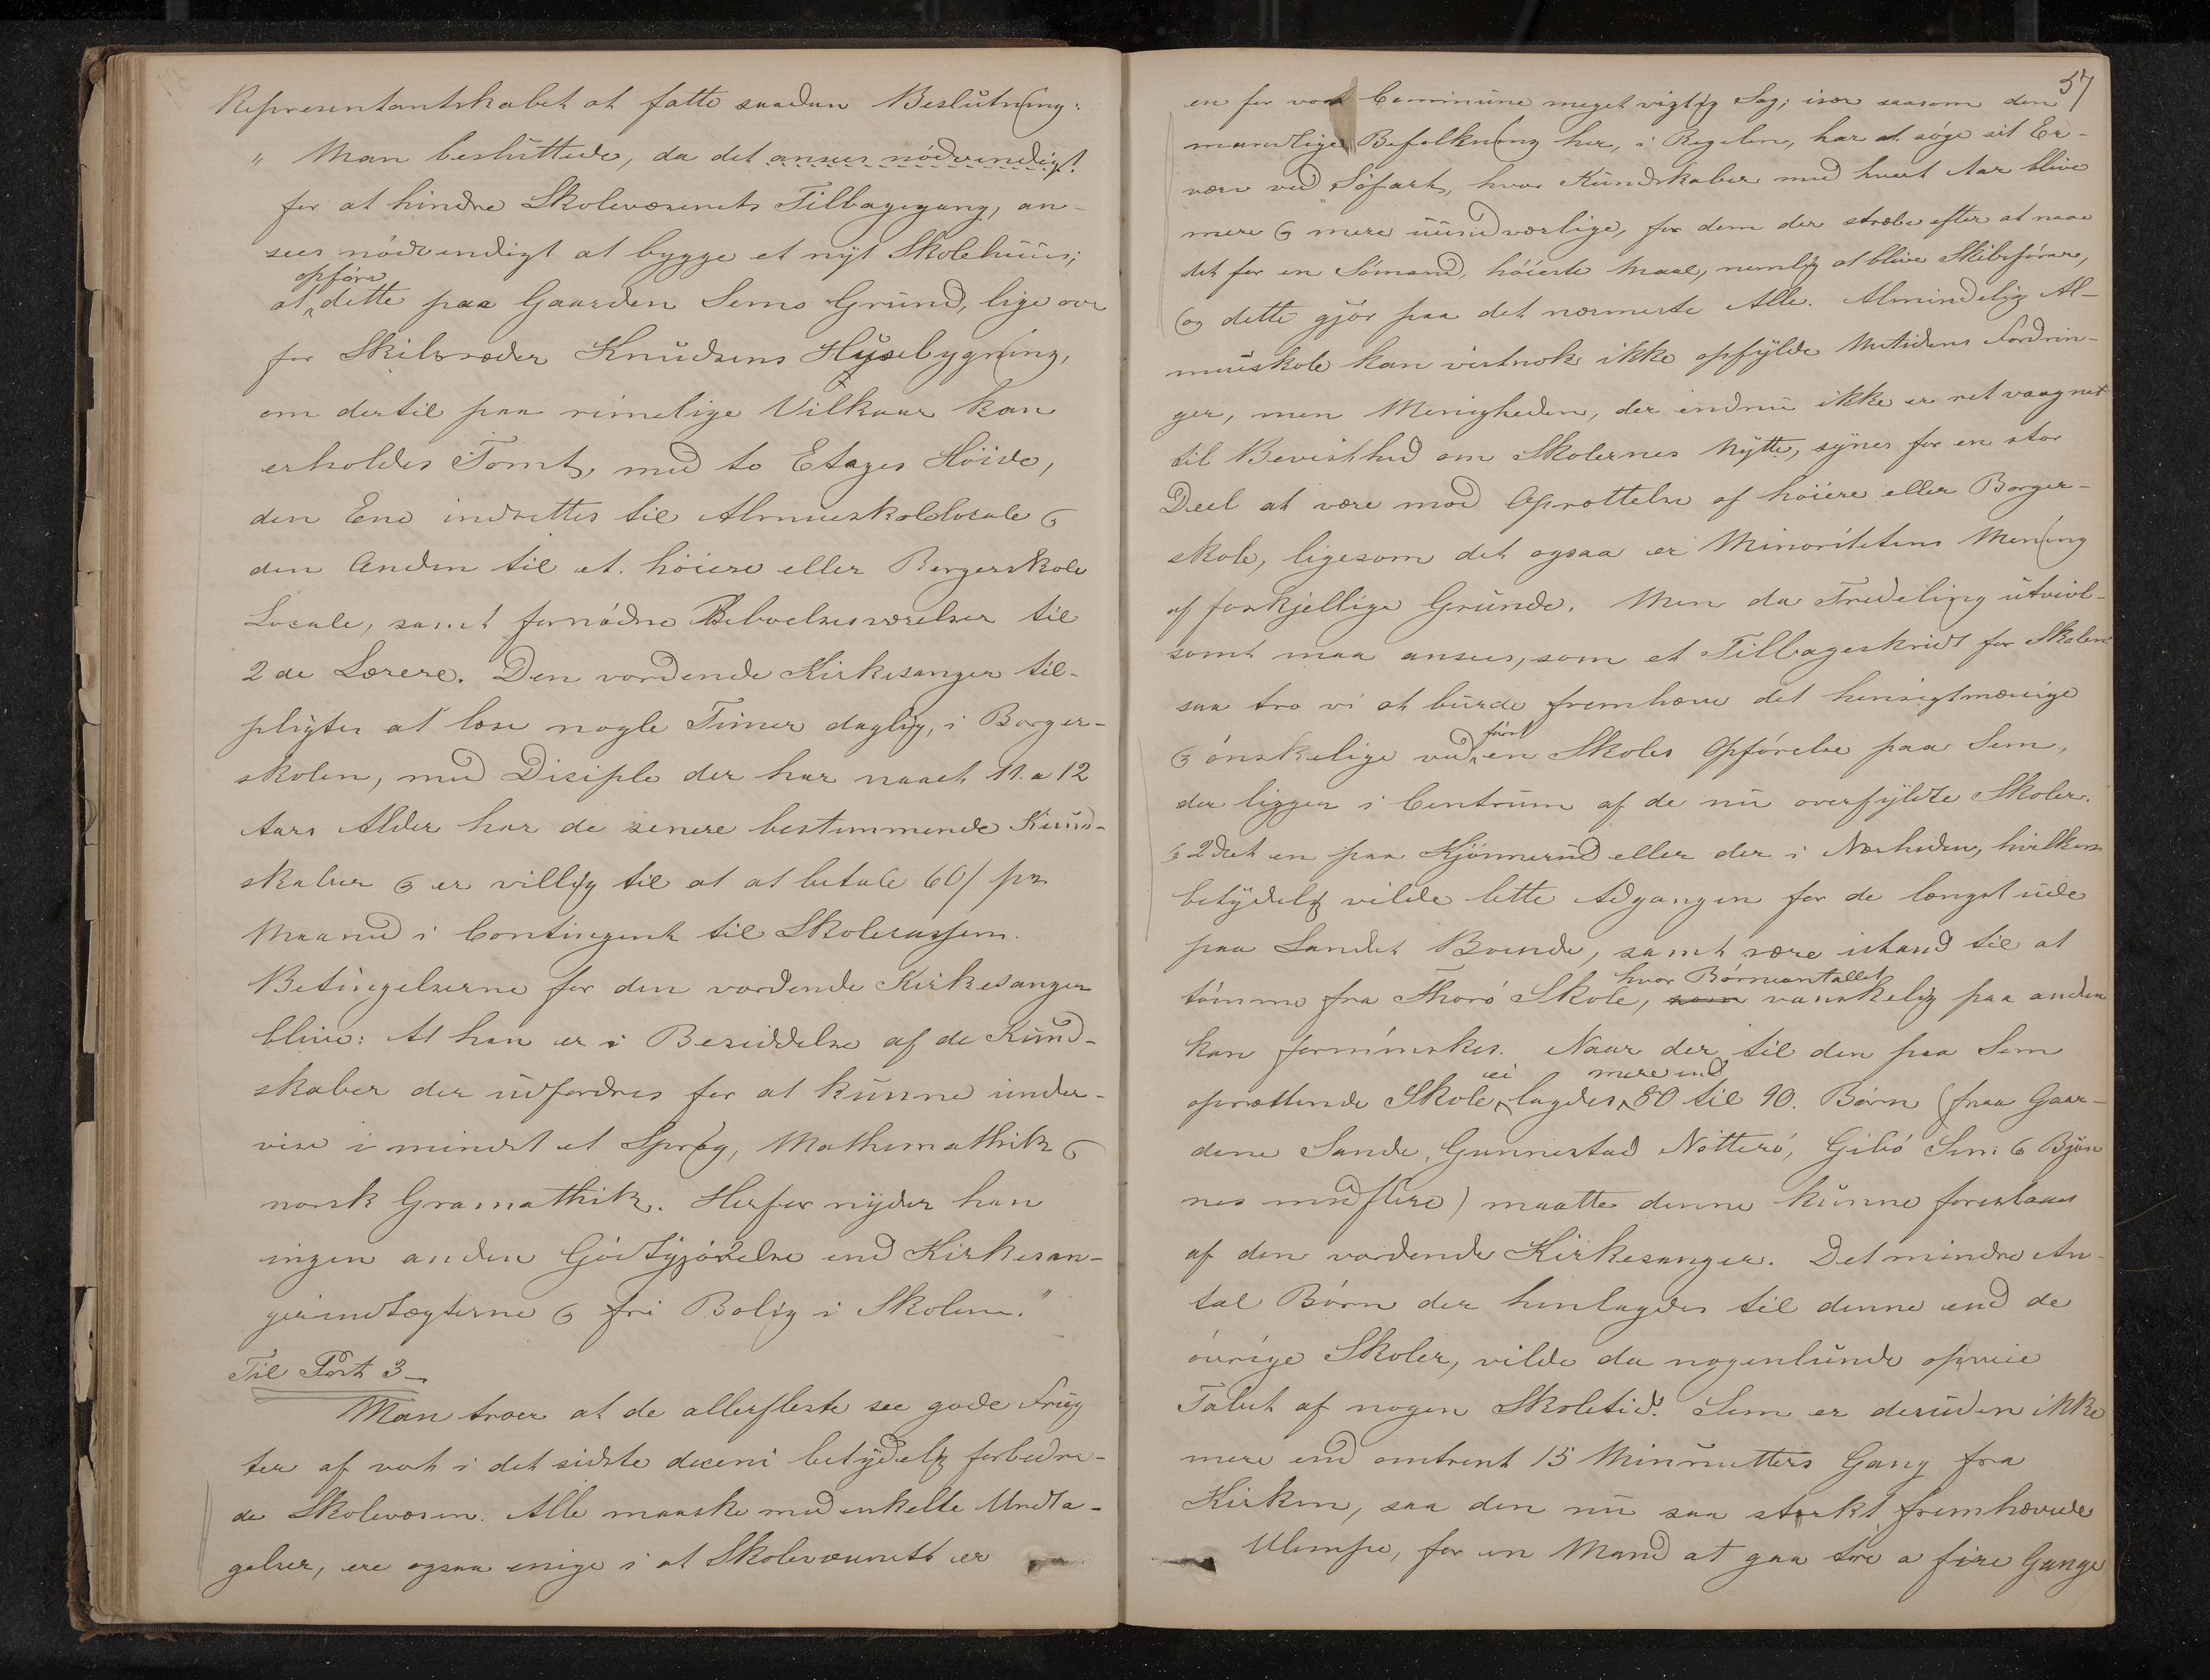 Representantskabet at fatte saadan Beslutning:
" Man besluttede, da det ansees nödvendigt
for at hindre Skolevæsenets Tilbagegang, an-
sees nödvendigt at bygge et nyt Skolehuus;
opföre
at dette paa Gaarden Sems Grund, lige over
for Skibsreder Knudsens Huusebygning,
om dertil paa rimelige Vilkaar kan
erholdes Tomt, med to Etages Höide,
den Ene indrettes til Almueskolelocale &
den Anden til et höiere eller Borgerskole
Locale, samt fornödne Beboelsesværelser til
2 de Lærere. Den vordende Kirkesanger til-
pligtes at læse nogle Timer daglig, i Borger-
skolen, med Disciple der har naaet 11 a 12
Aars Alder har de senere bestemmende Kund-
skaber & er villig til at at betale 60/ pr
Maaned i Contingent til Skolecassen.
Betingelserne for den vordende Kirkesanger
blive: At han er i Besiddelse af de Kund-
skaber der udfordres for at kunne under-
vise i mindst et Sprog, Mathemathik &
norsk Gramathik. Herfor nyder han
ingen anden Godtgjörelse end Kirkesan-
gerindtægterne & fri Bolig i Skolen."
Til Post 3
Man troer at de allerfleste see gode Frug
ter af vort i det sidste deceni betydelig forbedre-
de Skolevæsen. Alle maaske med enkelte Undta-
gelser, ere ogsaa enige i at Skolevæsenet er
57
en for vor Commune meget vigtig Sag; især saasom den
mandlige Befolkning her, i Regelen, har at söge sit Er-
værv ved Söfart, hvor Kundskaber med hvert Aar blive
mere & mere uundværlige, for dem der stræbe efter at naae
det for en Sömand, höieste Maal, nemlig at blive Skibsförer,
og dette gjör paa det nærmeste Alle. Almindelig Al-
mueskole kan vistnok ikke opfylde Nutidens Fordrin-
ger, men Menigheden, der endnu ikke er ret vaagnet
til Bevisthed om Skolernes Nytte, synes for en stor
Deel at være mod Oprettelse af höiere eller Borger-
skole, ligesom det ogsaa er Minoritetens Mening
af forskjellige Grunde. Men da Tredeling utvivl-
somt maa ansees, som et Tilbageskridt for Skolen
saa tro vi at burde fremhæve det hensigtmæssige
först
& önskelige ved en Skoles Opförelse paa Sem,
der ligger i Centrum af de nu overfyldte Skoler.
& 2det en paa Kjönnerud eller der i Nærheden, hvilken
betydelig vilde lette Adgangen for de længst ude
paa Landet Boende, samt være istand til at
hvor Börneantallet
tömme fra Thorö Skole, som vanskelig paa anden
kan formindskes. Naar der til den paa Sem
ei mere end
oprettende Skole lagdes 80 til 90 Börn (fraa Gaar-
dene Sande, Gunnestad Nötterö, Gibö Sem & Bjön
nes med flere) maatte denne kunne forestaaes
af den vordende Kirkesanger. Det mindre An-
tal Börn der henlagdes til denne end de
övrige Skoler, vilde da nogenlunde opveie
Tabet af nogen Skoletid. Sem er desuden ikke
mere end omtrent 15 Minutters Gang fra
Kirken, saa den nu saa stærkt fremhævede
Ulempe, for en Mand at gaa tre a fire Gange